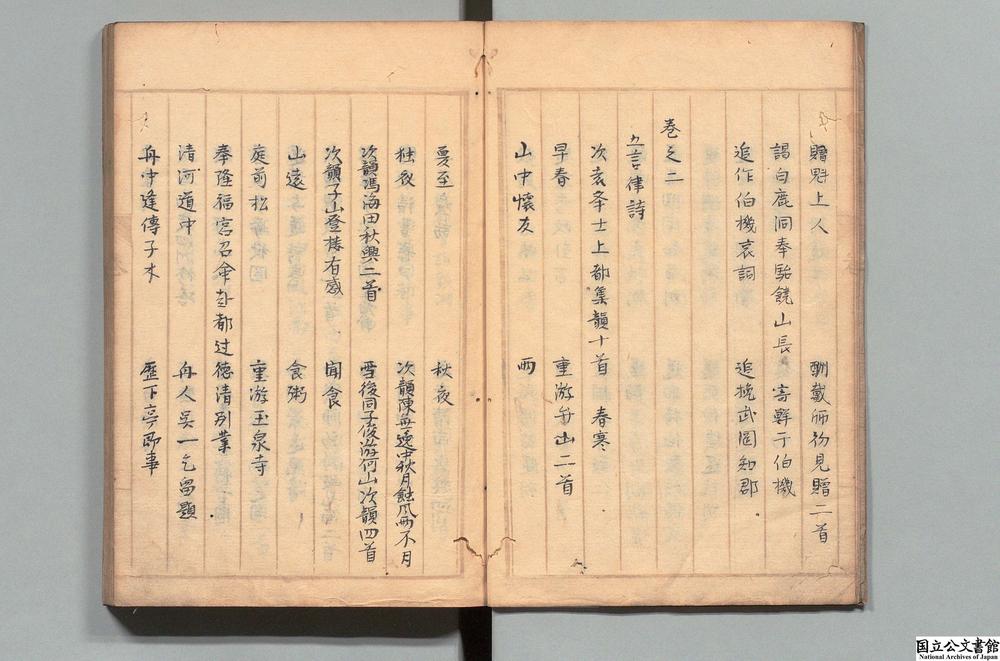 贈魁上人　酬戴師初見贈二首
謁白鹿洞奉貽饒山長　寄鮮于伯機
追作伯機哀詞　追挽武岡知郡
卷之二
五言律詩
次袁學士上都集韻十首　春寒
早春　重游弁山二首
山中懷友　雨
夏至　秋夜
独夜　次韻陳無逸中秋月蝕風雨不月
次韻馮海田秋興二首　雪後同子俊游何山次韻四首
次韻子山登樓有感　聞食
山遠　食粥
庭前松　重游玉泉寺
奉隆福宮召命赴都過德清別業
清河道中　舟人吳一乞留題
舟中逢傳子木　歷下亭即事
国立公文書館
National Archives of Japan